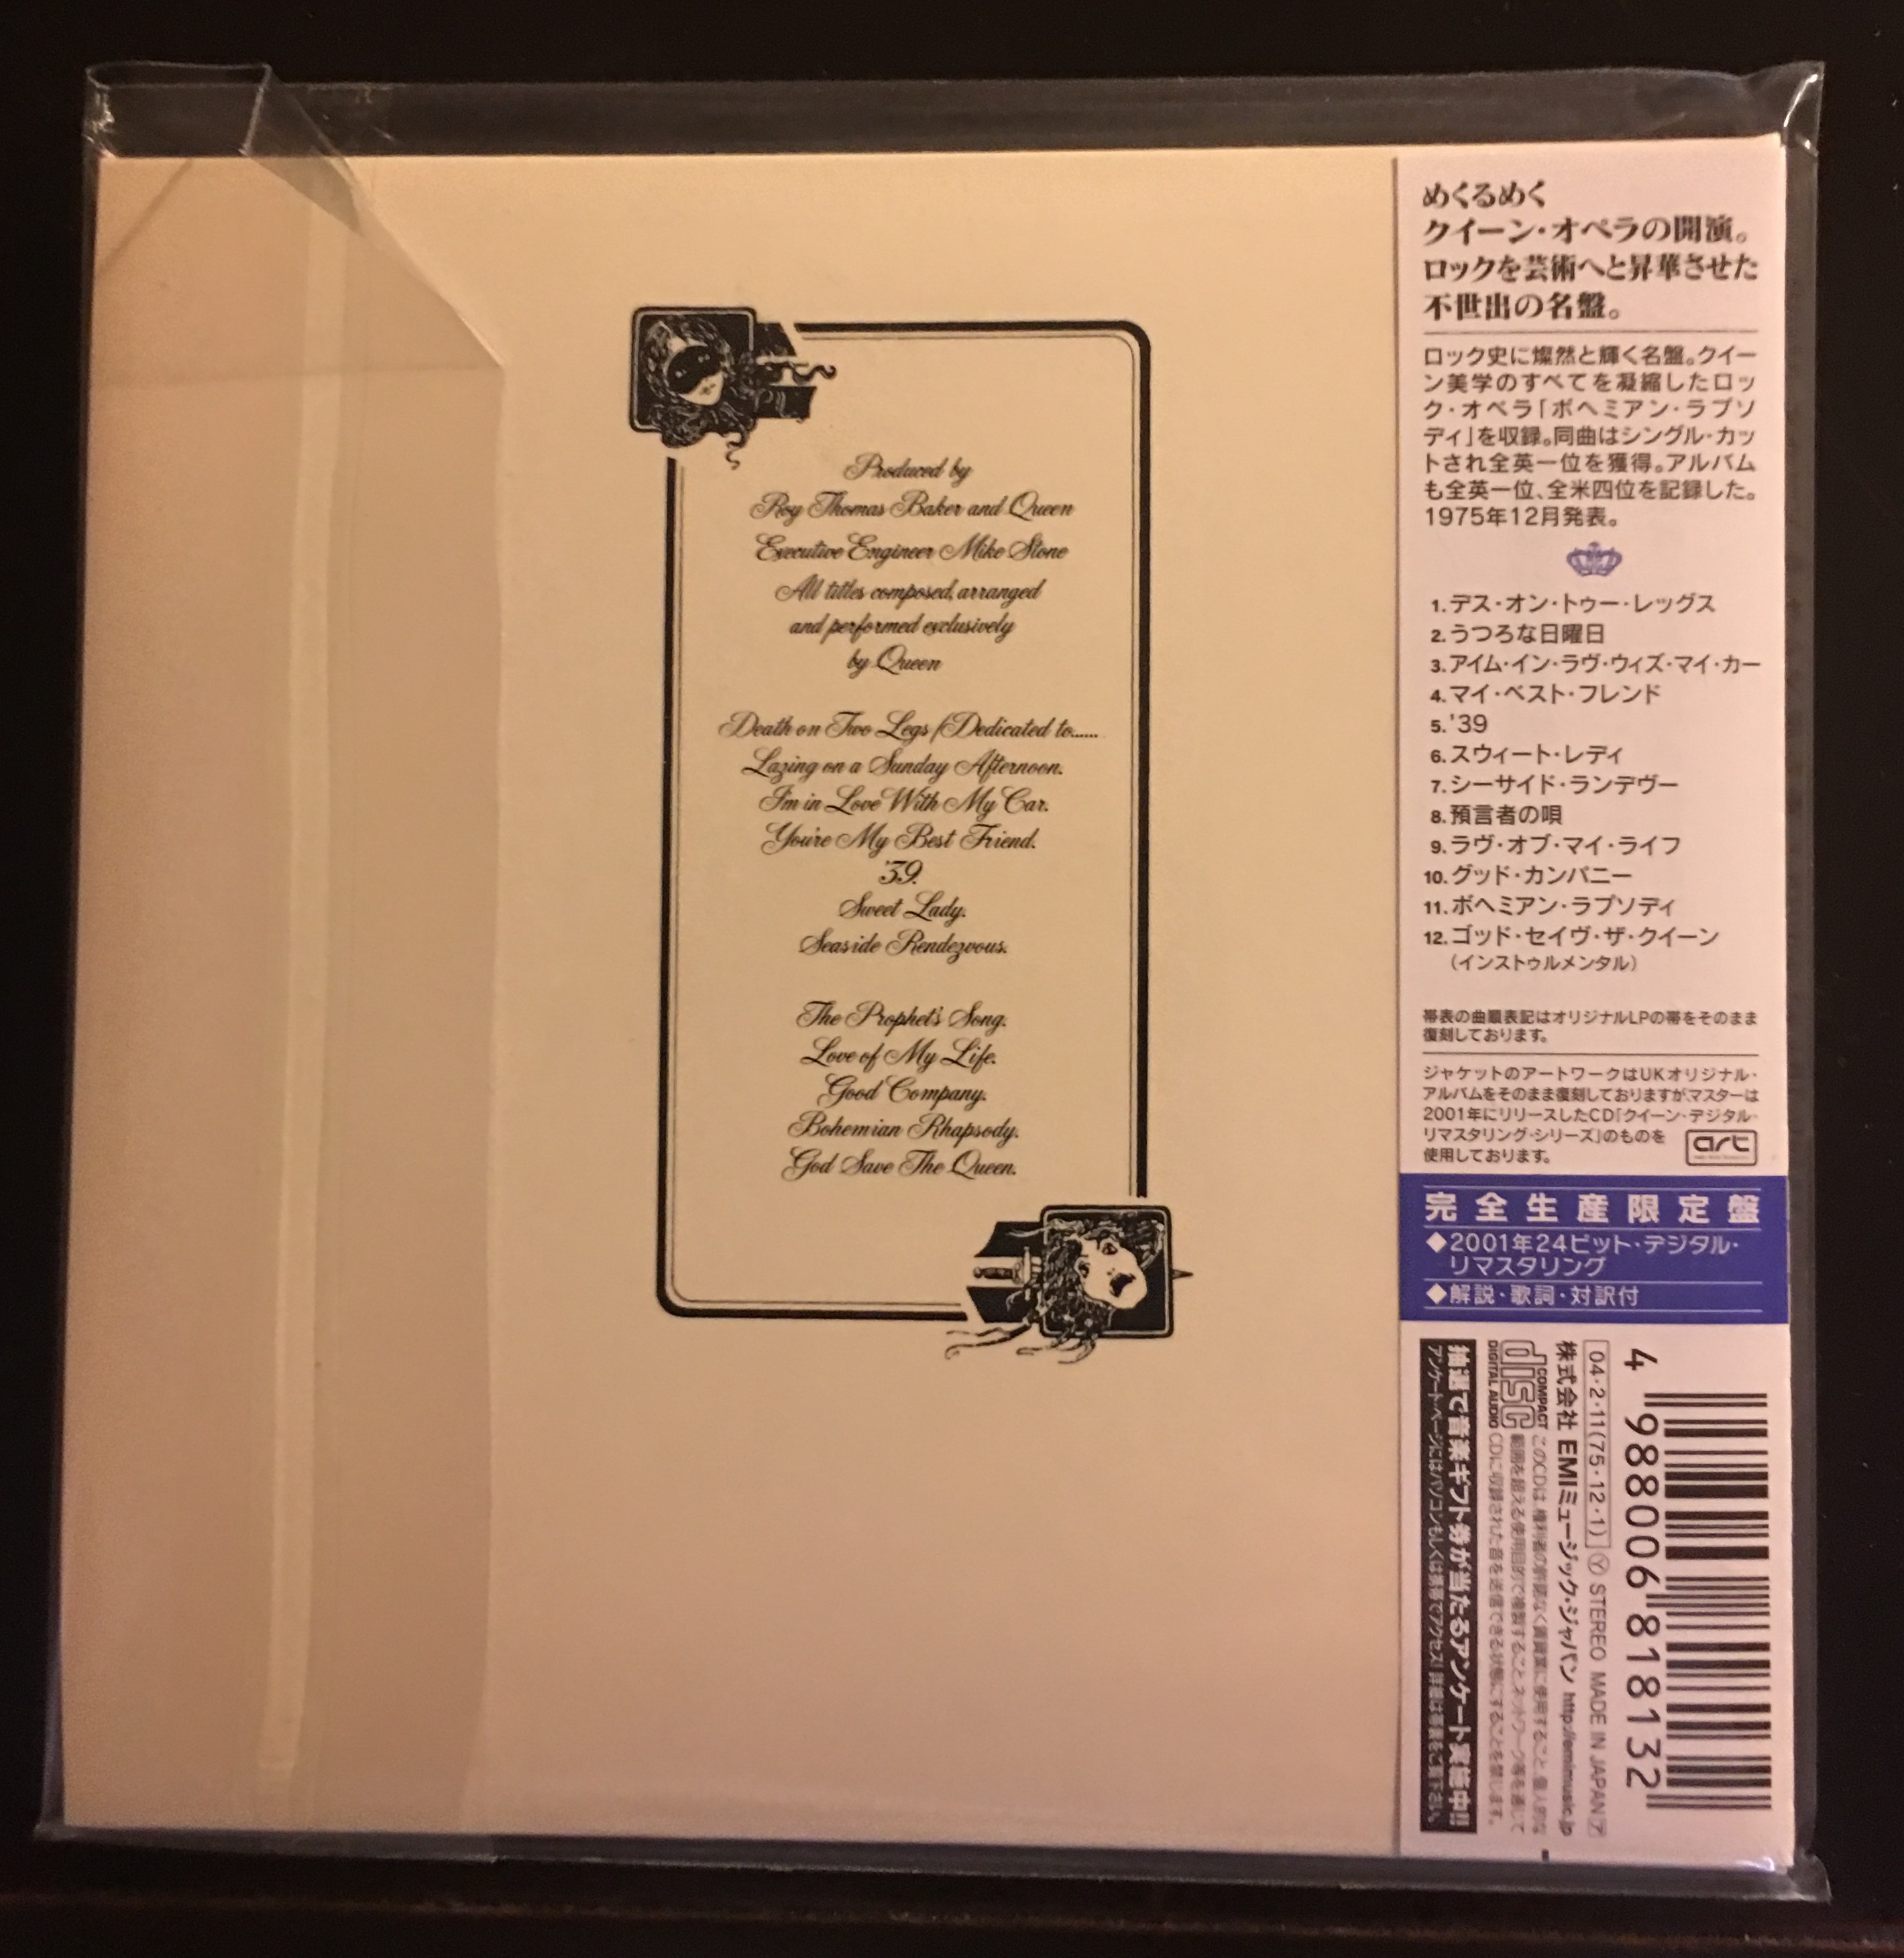 Produced by
Roy Thomas Baker and Queen
Executive Engineer Mike Stone
All titles composed, arranged
and performed exclusively
by Queen
Death on Two Legs (Dedicated to......
Lazing on a Sunday Afternoon.
I'm in Love With My Car.
You're My Best Friend.
'39.
Sweet Lady.
Seaside Rendezvous.
The Prophet's Song.
Love of My Life.
Good Company.
Bohemian Rhapsody.
God Save The Queen.
めくるめく
クイーン・オペラの開演。
ロックを芸術へと昇華させた
不世出の名盤。
ロック史に燦然と輝く名盤。クイー
ン美学のすべてを凝縮したロッ
ク・オペラ「ボヘミアン・ラプソ
ディ」を収録。同曲はシングル・カッ
トされ全英一位を獲得。アルバム
も全英一位、全米四位を記録した。
1975年12月発表。
1. デス・オン・トゥー・レッグス
2. うつろな日曜日
3. アイム・イン・ラヴ・ウィズ・マイ・カー
4. マイ・ベスト・フレンド
5. '39
6. スウィート・レディ
7. シーサイド・ランデヴー
8. 預言者の唄
9. ラヴ・オブ・マイ・ライフ
10. グッド・カンパニー
11. ボヘミアン・ラプソディ
12. ゴッド・セイヴ・ザ・クイーン
(インストゥルメンタル)
帯表の曲順表記はオリジナルLPの帯をそのまま
復刻しております。
ジャケットのアートワークはUKオリジナル・
アルバムをそのまま復刻しておりますがマスターは
2001年にリリースしたCD「クイーン・デジタル・
リマスタリング・シリーズ」のものを
使用しております。
art
完全生産限定盤
◆2001年24ビット・デジタル・
リマスタリング
◆解説・歌詞・対訳付
4 988006 818132
04・2・11(75・12・1) Ⓨ STEREO MADE IN JAPAN ア
株式会社 EMIミュージック・ジャパン http://emimusic.jp
COMPACT
disc
DIGITAL AUDIO
このCDは、権利者の許諾なく賃貸業に使用すること、個人的な
範囲を超える使用目的で複製すること、ネットワーク等を通じて
CDに収録された音を送信できる状態にすることを禁じます。
抽選で音楽ギフト券が当たるアンケート実施中!!